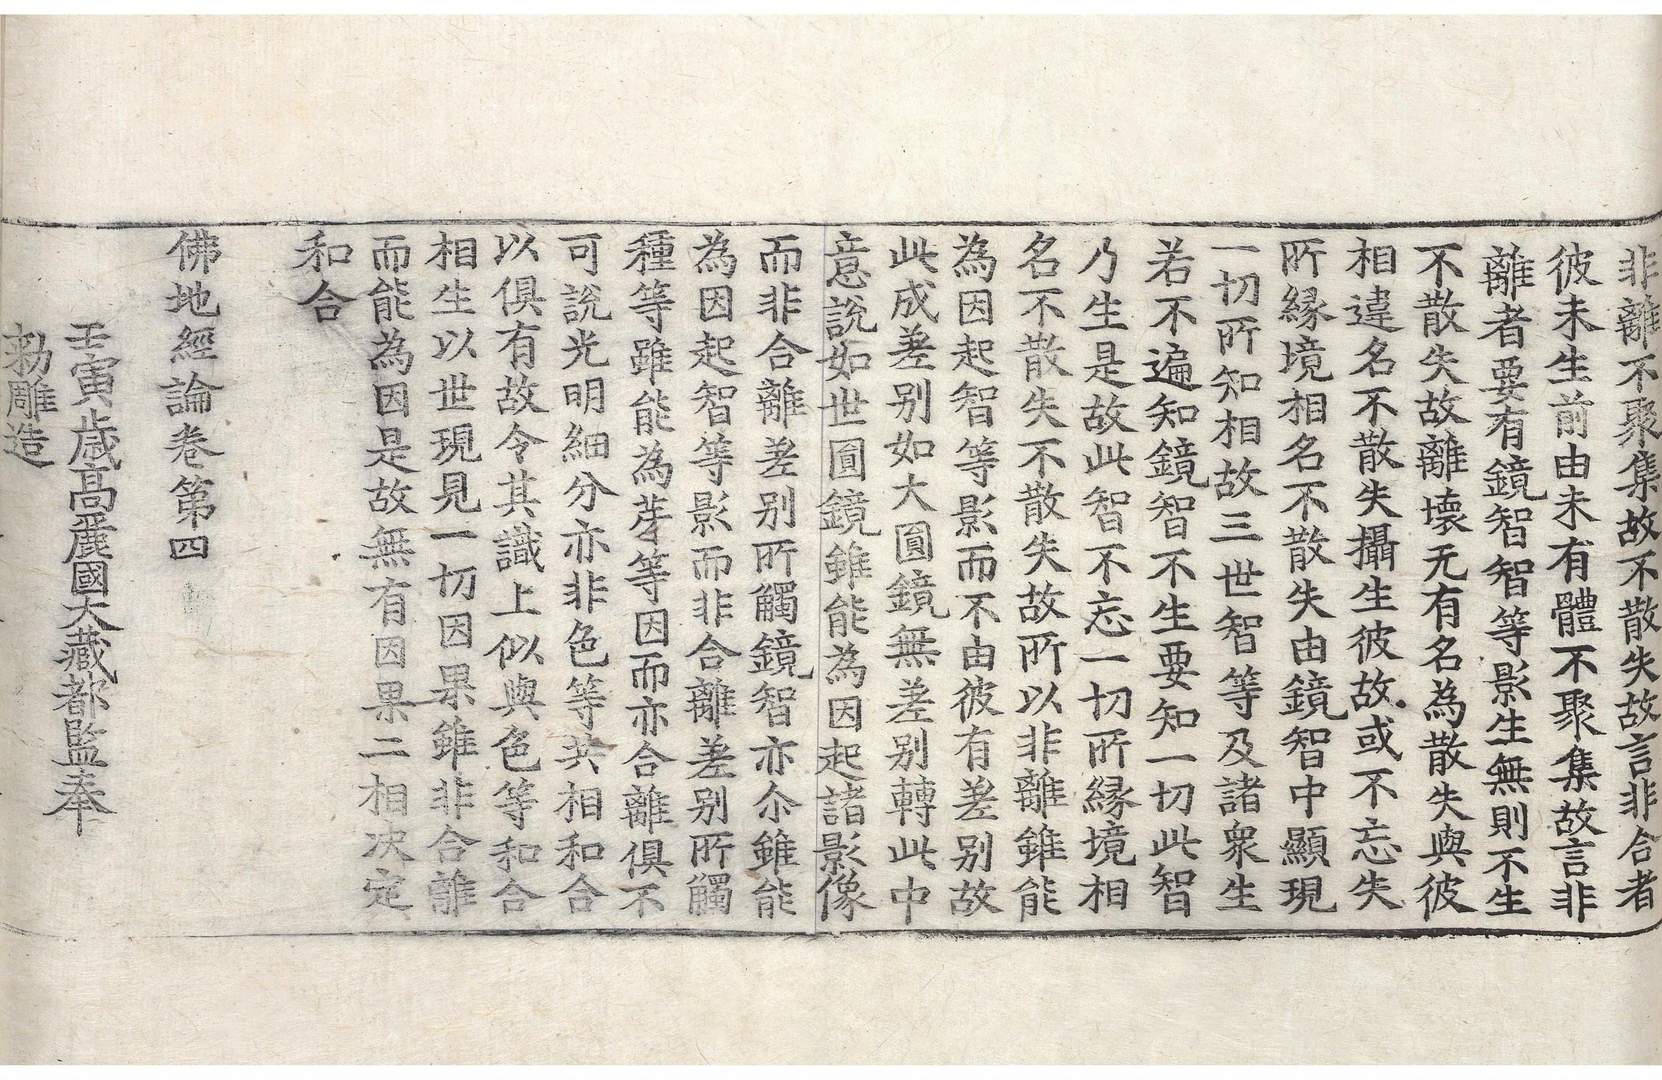 非離不聚集故不散失故言非合者
彼未生前由未有體不聚集故言非
離者要有鏡智智等影生無則不生
不散失故離壞无有名為散失與彼
相違名不散失攝生彼故或不忘失
所縁境相名不散失由鏡智中顯現
一切所知相故三世智等及諸衆生
若不遍知鏡智不生要知一切此智
乃生是故此智不忘一切所縁境相
名不散失不散失故所以非離雖能
為因起智等影而不由彼有差别故
此成差别如大圓鏡無差别轉此中
意說如世圓鏡雖能為因起諸影像
而非合離差别所觸鏡智亦尒雖能
為因起智等影而非合離差别所觸
種等雖能為芽等因而亦合離俱不
可說光明細分亦非色等共相和合
以俱有故令其識上似與色等和合
相生以世現見一切因果雖非合離
而能為因是故無有因果二相决定
和合
佛地經論卷第四
壬寅歳高麗國大藏都監奉
勑雕造